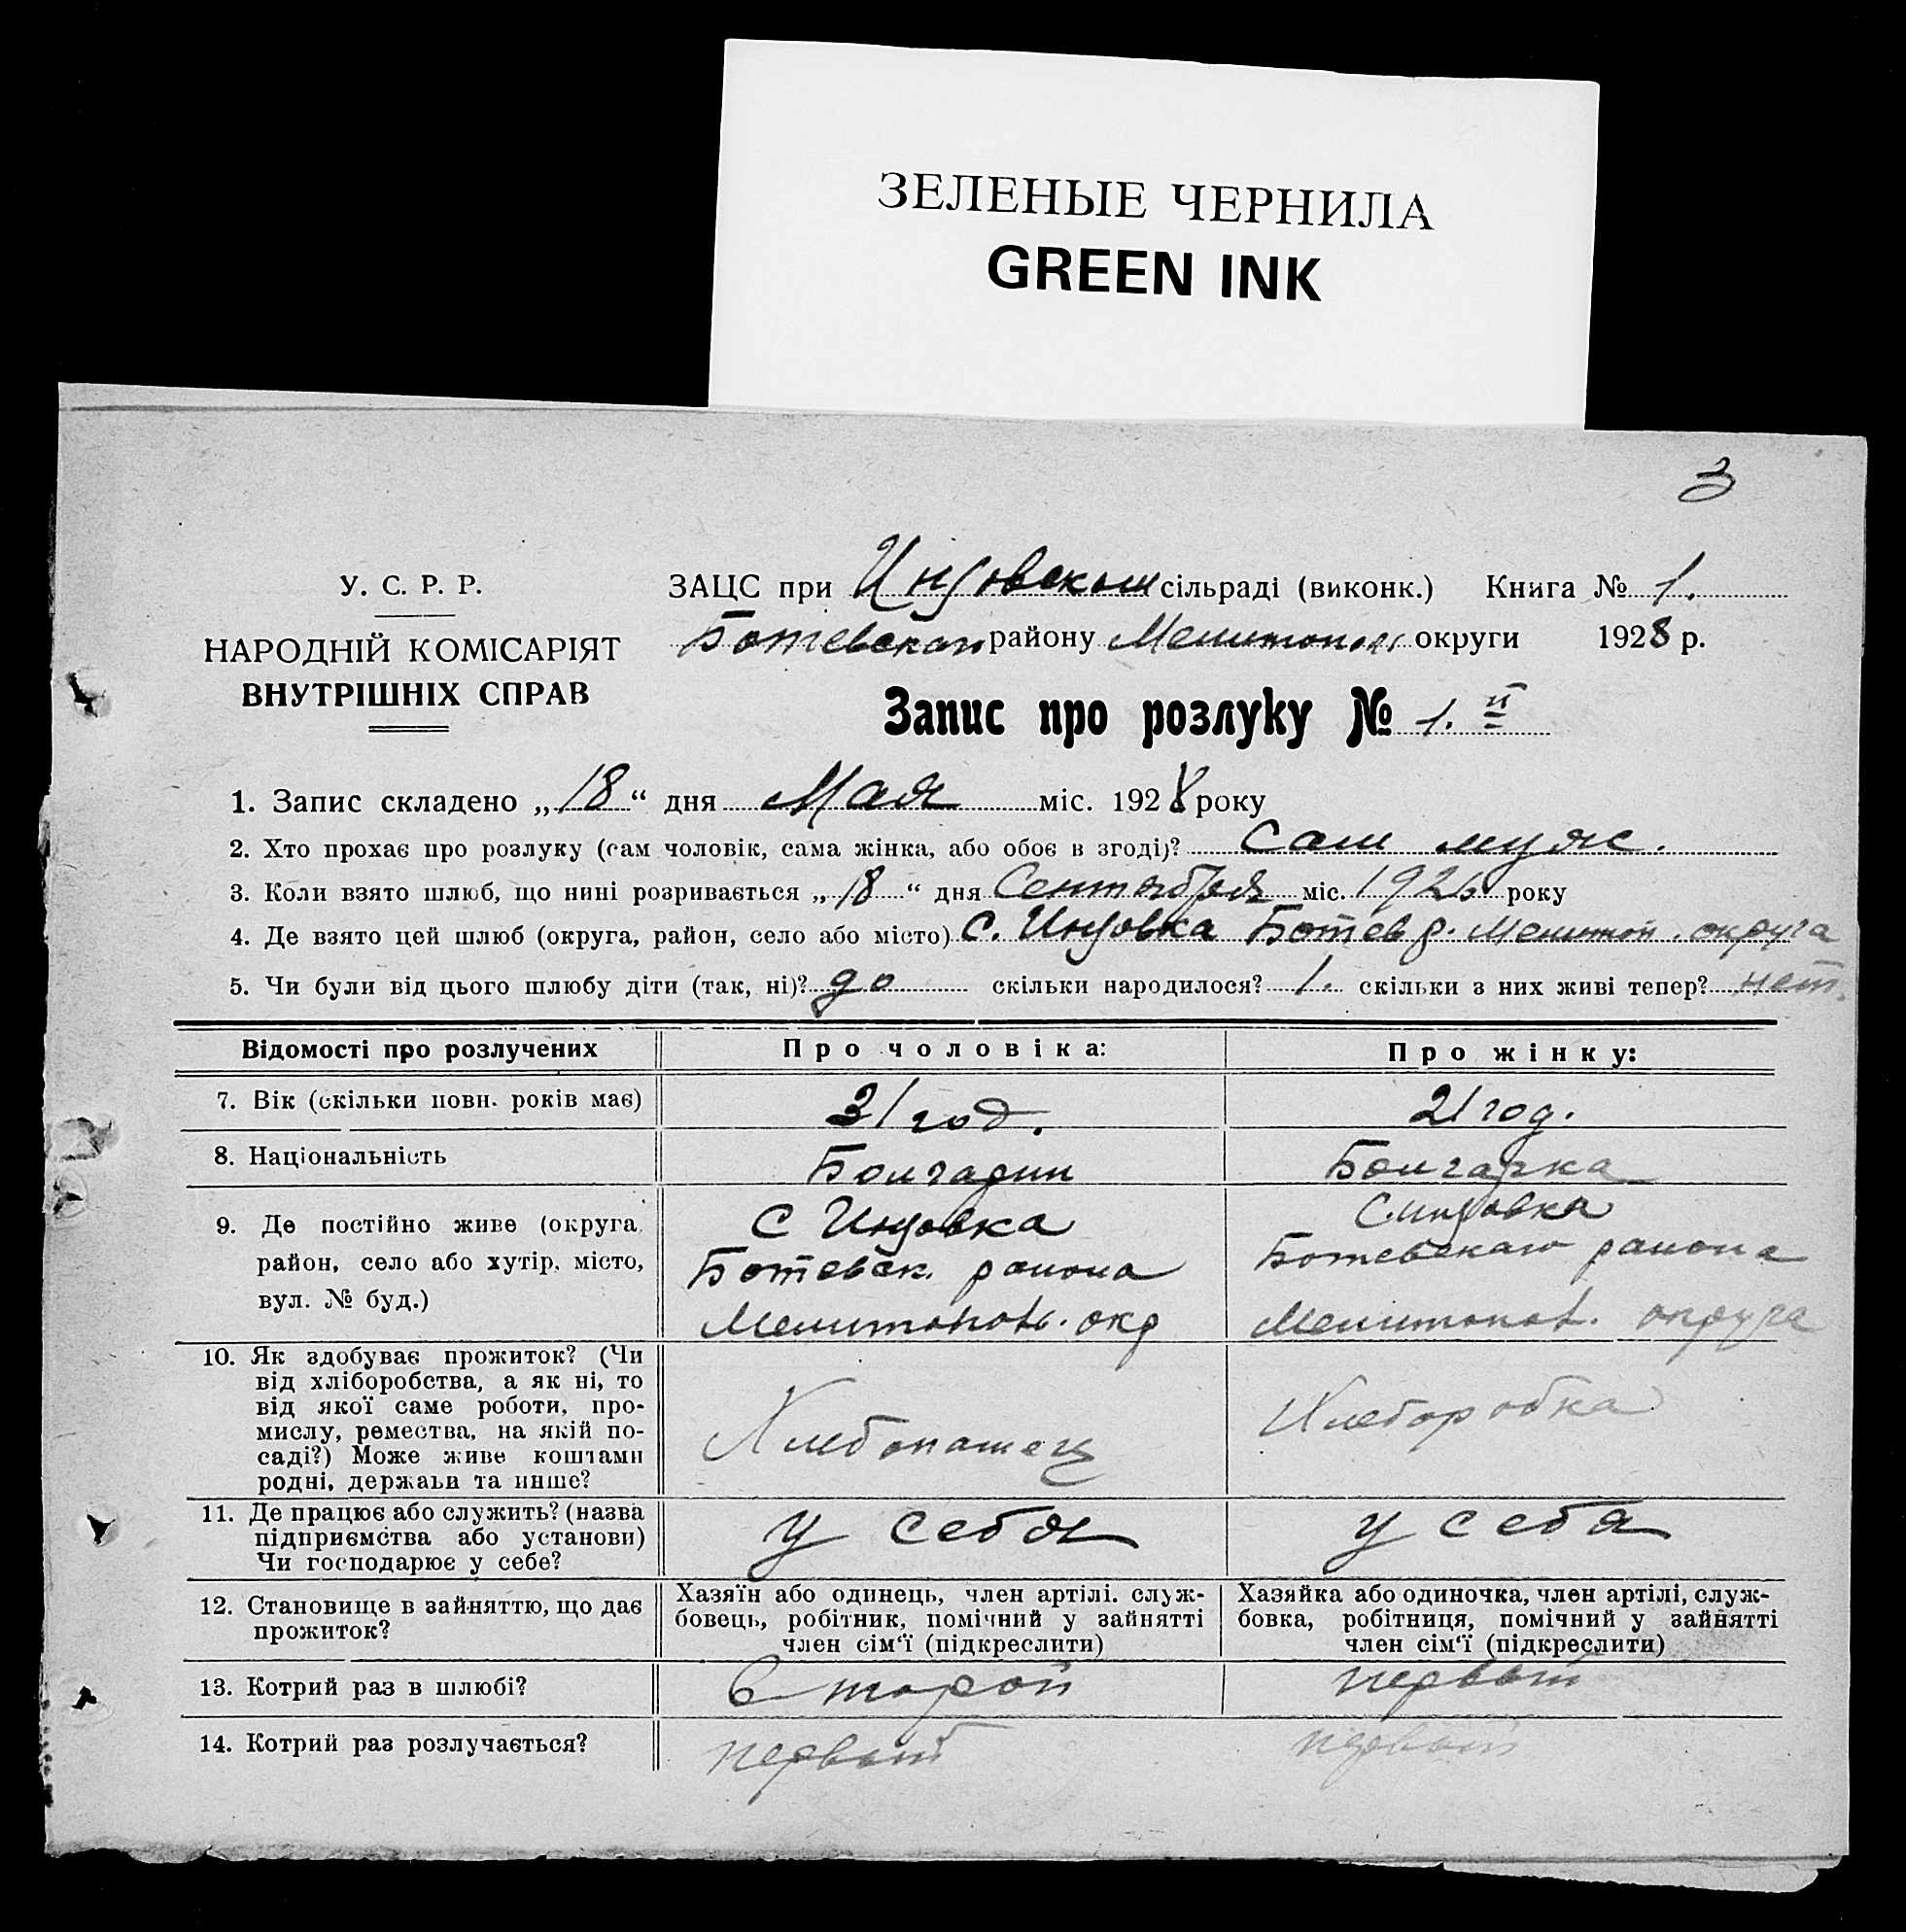 ЗЕЛЕНЫЕ ЧЕРНИЛА
GREEN INK
3
У. С. Р. Р.
НАРОДНІЙ КОМІСАРІЯТ
ВНУТРІШНІХ СПРАВ
ЗАЦС при Инзовском сільраді (виконк.) Книга № 1.
Ботевскаго району Мелитопол округи 1928 р.
Запис про розлуку № 1. й
1. Запис складено „18“ дня Мая міс. 1928 року
2. Хто прохає про розлуку (сам чоловік, сама жінка, або обоє в згоді)? Сам муж.
3. Коли взято шлюб, що нині розривається „18“ дня Сентября міс. 1926 року
4. Де взято цей шлюб (округа, район, село або місто) С. Инзовка Ботев р. Мелитоп. округа
5. Чи були від цього шлюбу діти (так, ні)? до скільки народилося? 1. скільки з них живі тепер? нет.
Відомості про розлучених Про чоловіка: Про жінку:
7. Вік (скільки повн. років має) 31 год. 21 год.
8. Національність Болгарин Болгарка
9. Де постійно живе (округа, район, село або хутір, місто, вул. № буд.)
С Инзовка
Ботевск. района
Мелитопол. окр
С. Инзовка
Ботевскаго района
Мелитопол. округа
10. Як здобуває прожиток? (Чи
від хліборобства, а як ні, то
від якої саме роботи, про-
мислу, ремества, на якій по-
саді?) Може живе коштами
родні, держави та инше?
Хлебопашец
Хлеборобка
11. Де працює або служить? (назва
підприємства або установи)
Чи господарює у себе?
у себя
у себя
12. Становище в зайняттю, що дає
прожиток?
Хазяїн або одинець, член артілі. служ-
бовець, робітник, помічний у зайнятті
член сім‘ї (підкреслити)
Хазяйка або одиночка, член артілі, служ-
бовка, робітниця, помічний у зайнятті
член сім‘ї (підкреслити)
13. Котрий раз в шлюбі? второй первый
14. Котрий раз розлучається? первый первый